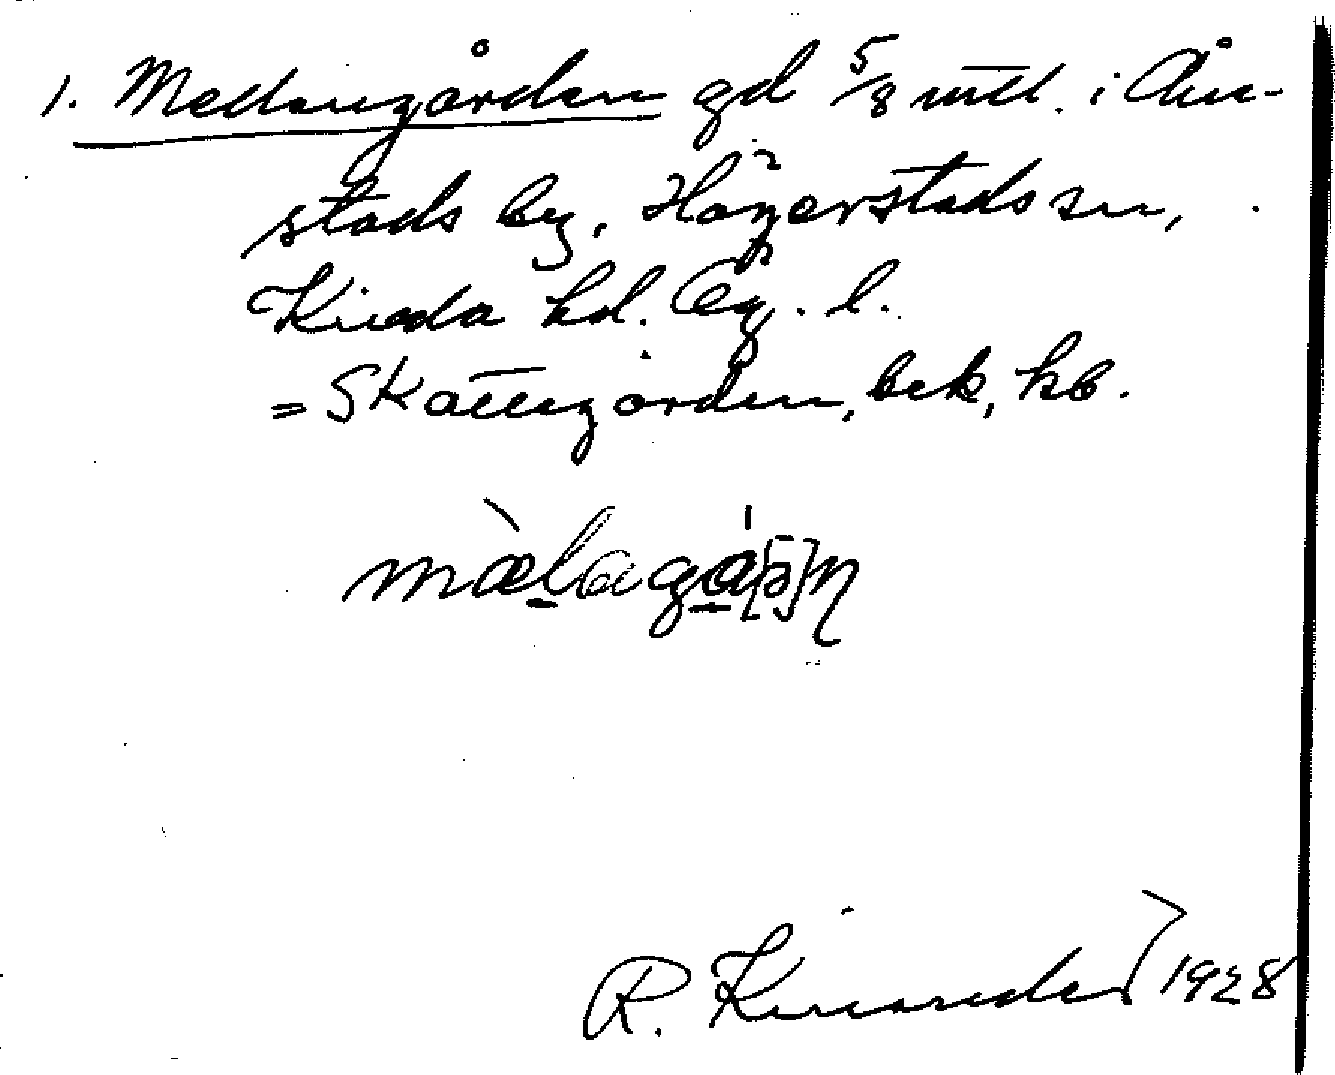 1. Mellangården gd 5/8 mtl. i Ån-
stads by, Högerstads sn,
Kinda hd. Ög. l.
= Skattegården, bek, kb.
R. Kinander 1928